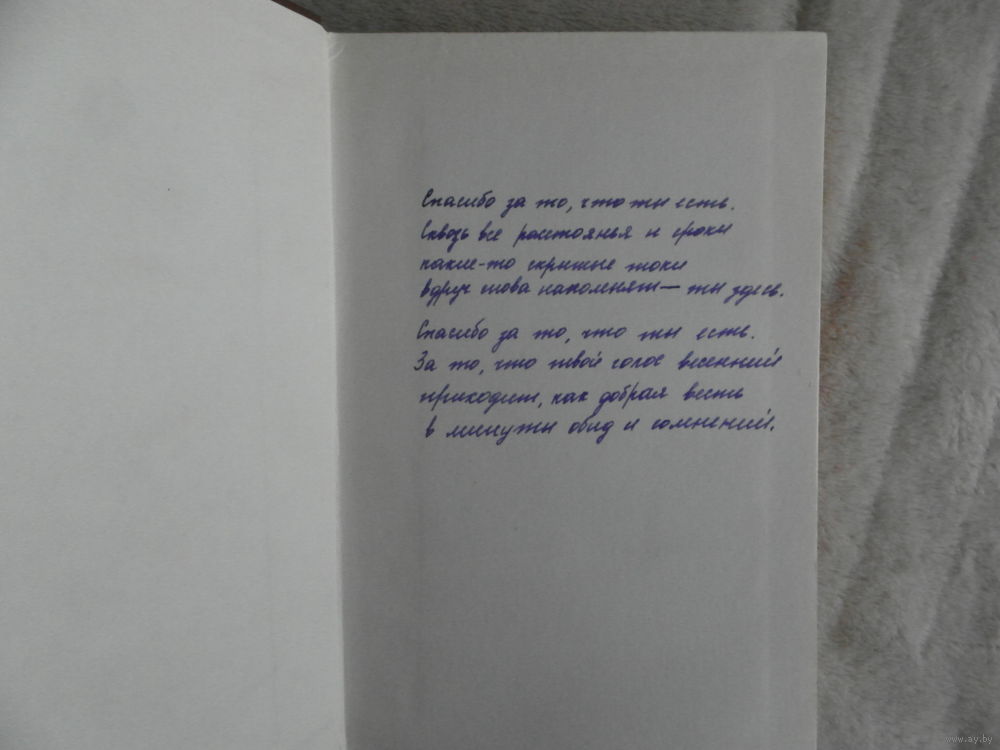 Спасибо за то, что ты есть.
Сквозь все расстоянья и сроки
какие-то скрытые токи
вдруг снова наполняют — ты здесь.
Спасибо за то, что ты есть.
За то, что твой голос весенний
приходит, как добрая весть
в минуты обид и сомнений.
www.ay.by